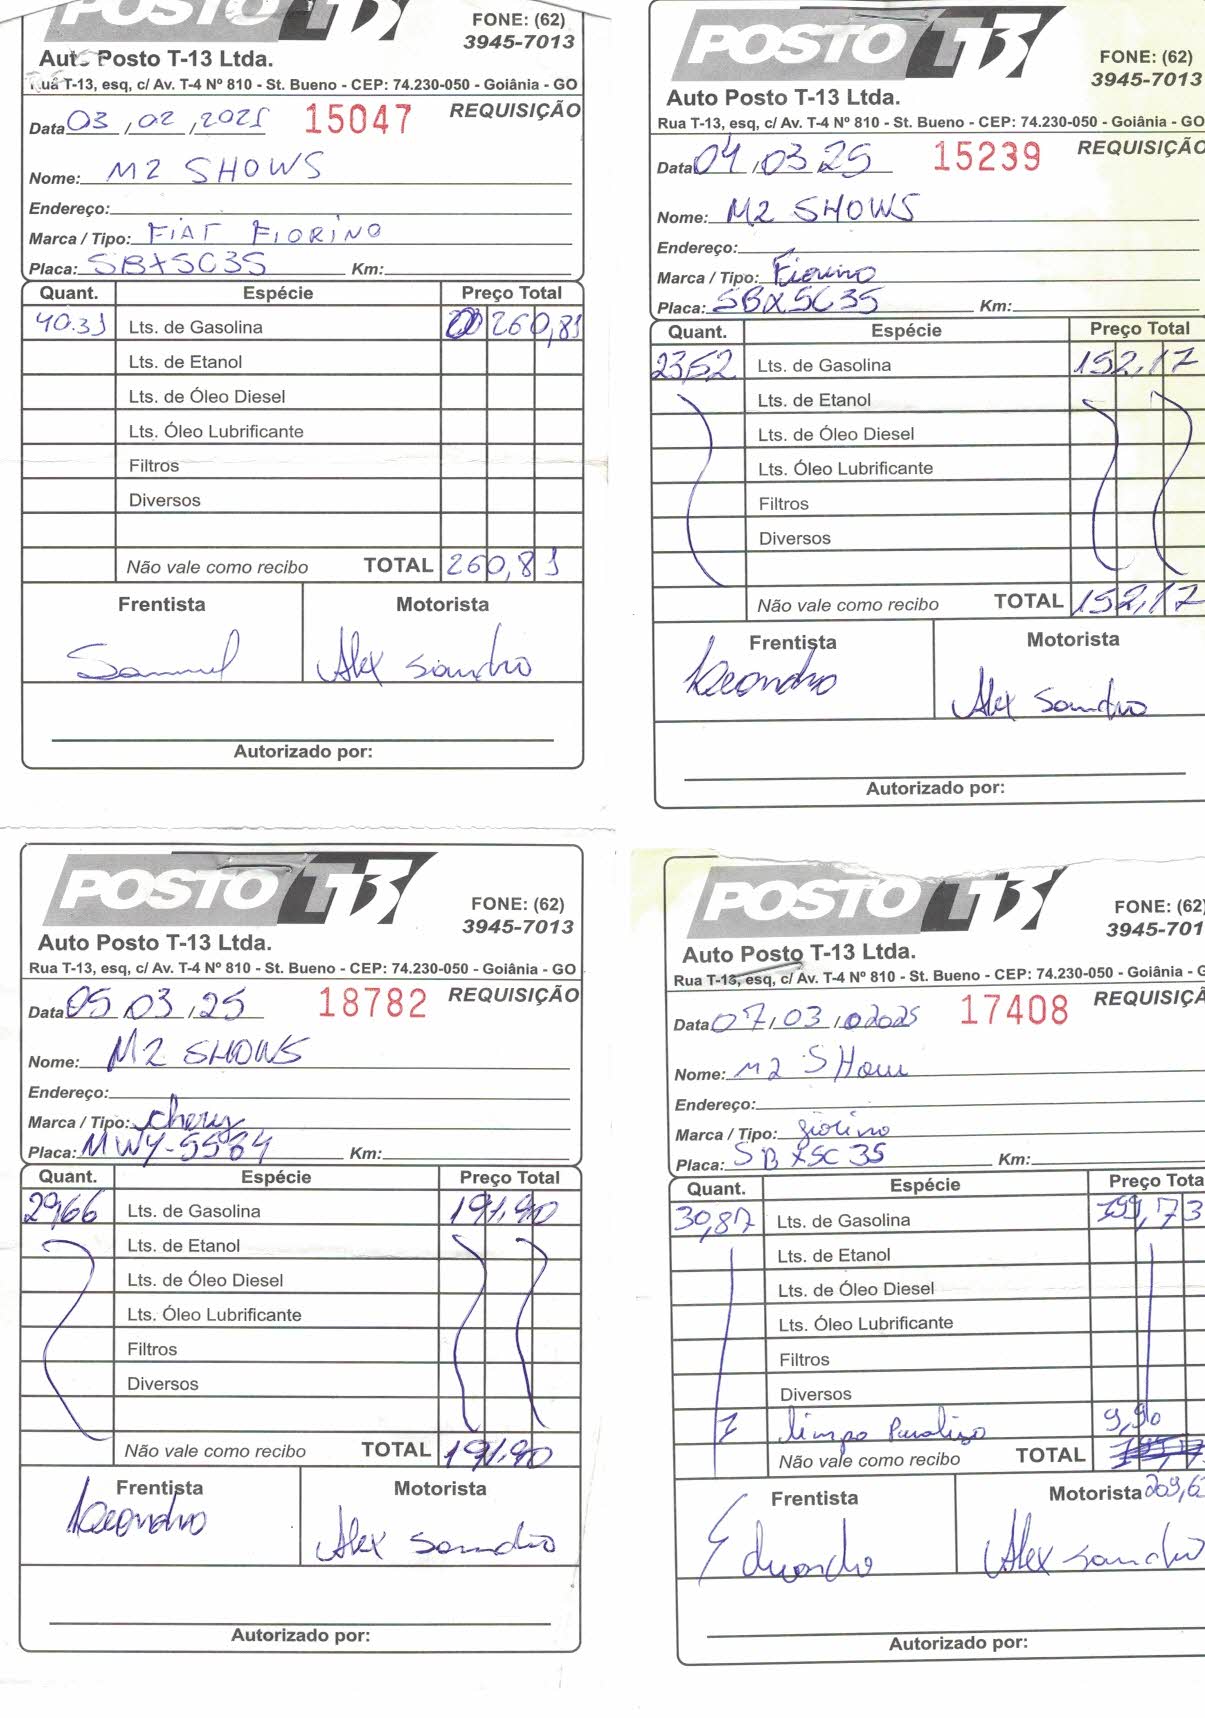 POSTO T-13
FONE: (62)
3945-7013
Auto Posto T-13 Ltda.
Rua T-13, esq, c/ Av. T-4 Nº 810 - St. Bueno - CEP: 74.230-050 - Goiânia - GO
Data 03 / 02 / 2025 15047 REQUISIÇÃO
Nome: M2 SHOWS
Endereço:
Marca / Tipo: FIAT FIORINO
Placa: SBX5C35 Km:
Quant. Espécie Preço Total
40.31 Lts. de Gasolina 260,81
Lts. de Etanol
Lts. de Óleo Diesel
Lts. Óleo Lubrificante
Filtros
Diversos
Não vale como recibo TOTAL 260,81
Frentista Motorista
Samuel Alex Sandro
Autorizado por:
POSTO T-13
FONE: (62)
3945-7013
Auto Posto T-13 Ltda.
Rua T-13, esq, c/ Av. T-4 Nº 810 - St. Bueno - CEP: 74.230-050 - Goiânia - GO
Data 04 / 03 25 15239 REQUISIÇÃO
Nome: M2 SHOWS
Endereço:
Marca / Tipo: Fiorino
Placa: SBX5C35 Km:
Quant. Espécie Preço Total
23,52 Lts. de Gasolina 152,17
Lts. de Etanol
Lts. de Óleo Diesel
Lts. Óleo Lubrificante
Filtros
Diversos
Não vale como recibo TOTAL 152,17
Frentista Motorista
Leandro Alex Sandro
Autorizado por:
POSTO T-13
FONE: (62)
3945-7013
Auto Posto T-13 Ltda.
Rua T-13, esq, c/ Av. T-4 Nº 810 - St. Bueno - CEP: 74.230-050 - Goiânia - GO
Data 05 / 03 / 25 18782 REQUISIÇÃO
Nome: M2 SHOWS
Endereço:
Marca / Tipo: Chery
Placa: MWY-5564 Km:
Quant. Espécie Preço Total
29,66 Lts. de Gasolina 191,90
Lts. de Etanol
Lts. de Óleo Diesel
Lts. Óleo Lubrificante
Filtros
Diversos
Não vale como recibo TOTAL 191,90
Frentista Motorista
Leandro Alex Sandro
Autorizado por:
POSTO T-13
FONE: (62)
3945-701
Auto Posto T-13 Ltda.
Rua T-13, esq, c/ Av. T-4 Nº 810 - St. Bueno - CEP: 74.230-050 - Goiânia - G
Data 07 / 03 / 2025 17408 REQUISIÇÃ
Nome: M2 SHow
Endereço:
Marca / Tipo: fiorino
Placa: SBX5C35 Km:
Quant. Espécie Preço Tota
30,87 Lts. de Gasolina 199,73
Lts. de Etanol
Lts. de Óleo Diesel
Lts. Óleo Lubrificante
Filtros
Diversos
1 limpa Parabriso 9,90
Não vale como recibo TOTAL
Frentista Motorista 209,63
Eduardo Alex Sandro
Autorizado por: